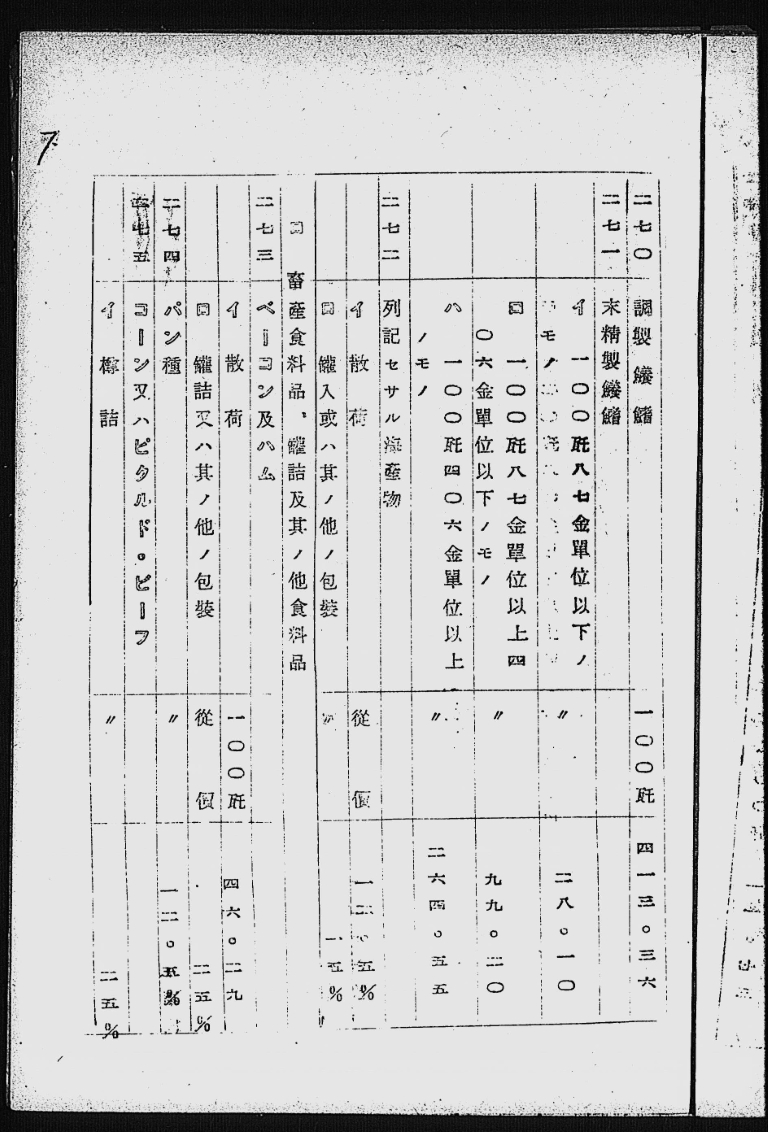 7
二七〇 調製鱶鰭 一〇〇瓩 四一三。三六
二七一 末精製鱶鰭
イ 一〇〇瓩八七金單位以下ノ
モノ 〃 二八。一〇
ロ 一〇〇瓩八七金單位以上四
〇六金單位以下ノモノ 〃 九九。二〇
ハ 一〇〇瓩四〇六金單位以上
ノモノ 〃 二六四。五五
二七二 列記セサル海產物
イ 散荷 從價 一二。五%
ロ 罐入或ハ其ノ他ノ包裝 〃 一五%
ロ 畜產食料品、罐詰及其ノ他食料品
二七三 ベーコン及ハム
イ 散荷 一〇〇瓩 四六。二九
ロ 罐詰又ハ其ノ他ノ包裝 從價 二五%
二七四 パン種 〃 一二。五%
二七五 コーン又ハピクルド。ビーフ
イ 罇詰 〃 二五%